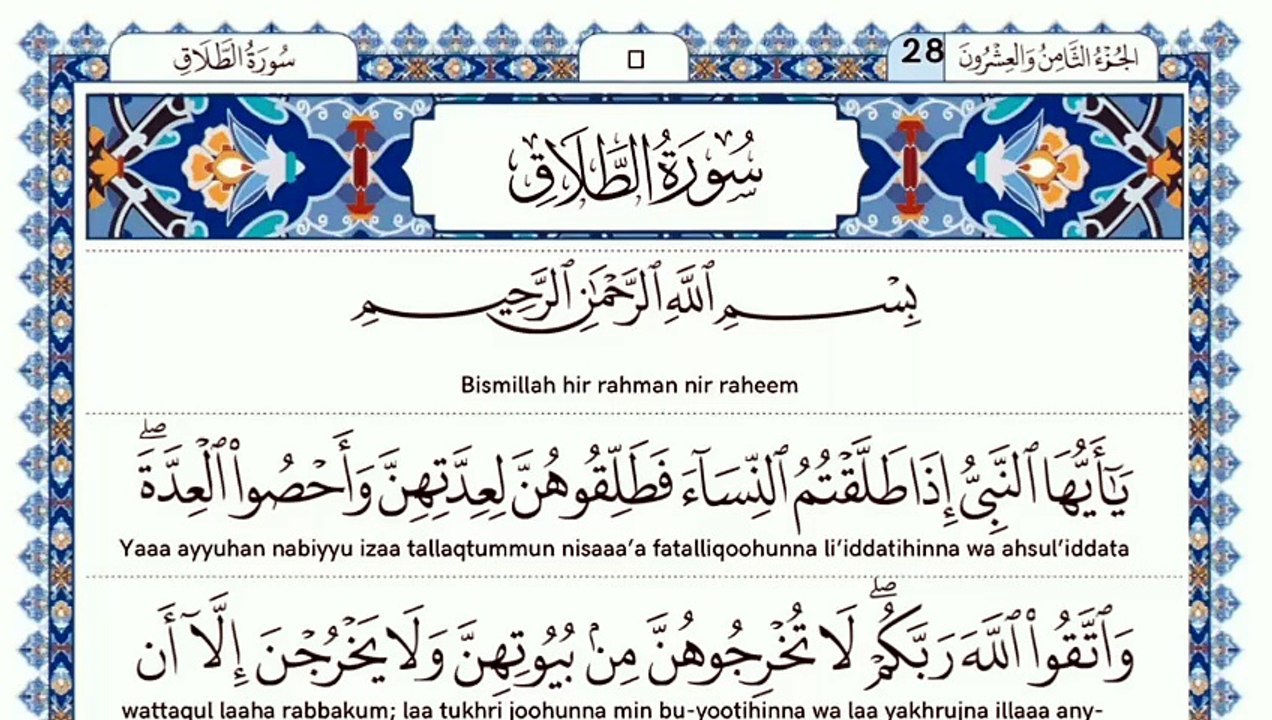 سُورَةُ الطَّلَاقِ
28 الجُزْءُ الثَّامِنُ وَالْعِشْرُونَ
سُورَةُ الطَّلَاقِ
بِسْمِ ٱللَّهِ ٱلرَّحْمَٰنِ ٱلرَّحِيمِ
Bismillah hir rahman nir raheem
يَٰٓأَيُّهَا ٱلنَّبِيُّ إِذَا طَلَّقْتُمُ ٱلنِّسَآءَ فَطَلِّقُوهُنَّ لِعِدَّتِهِنَّ وَأَحْصُوا۟ ٱلْعِدَّةَ ۖ
Yaaa ayyuhan nabiyyu izaa tallaqtummun nisaaa’a fatalliqoohunna li’iddatihinna wa ahsul’iddata
وَٱتَّقُوا۟ ٱللَّهَ رَبَّكُمْ ۖ لَا تُخْرِجُوهُنَّ مِنۢ بُيُوتِهِنَّ وَلَا يَخْرُجْنَ إِلَّآ أَن
wattaqul laaha rabbakum; laa tukhri joohunna min bu-yootihinna wa laa yakhrujna illaaa any-